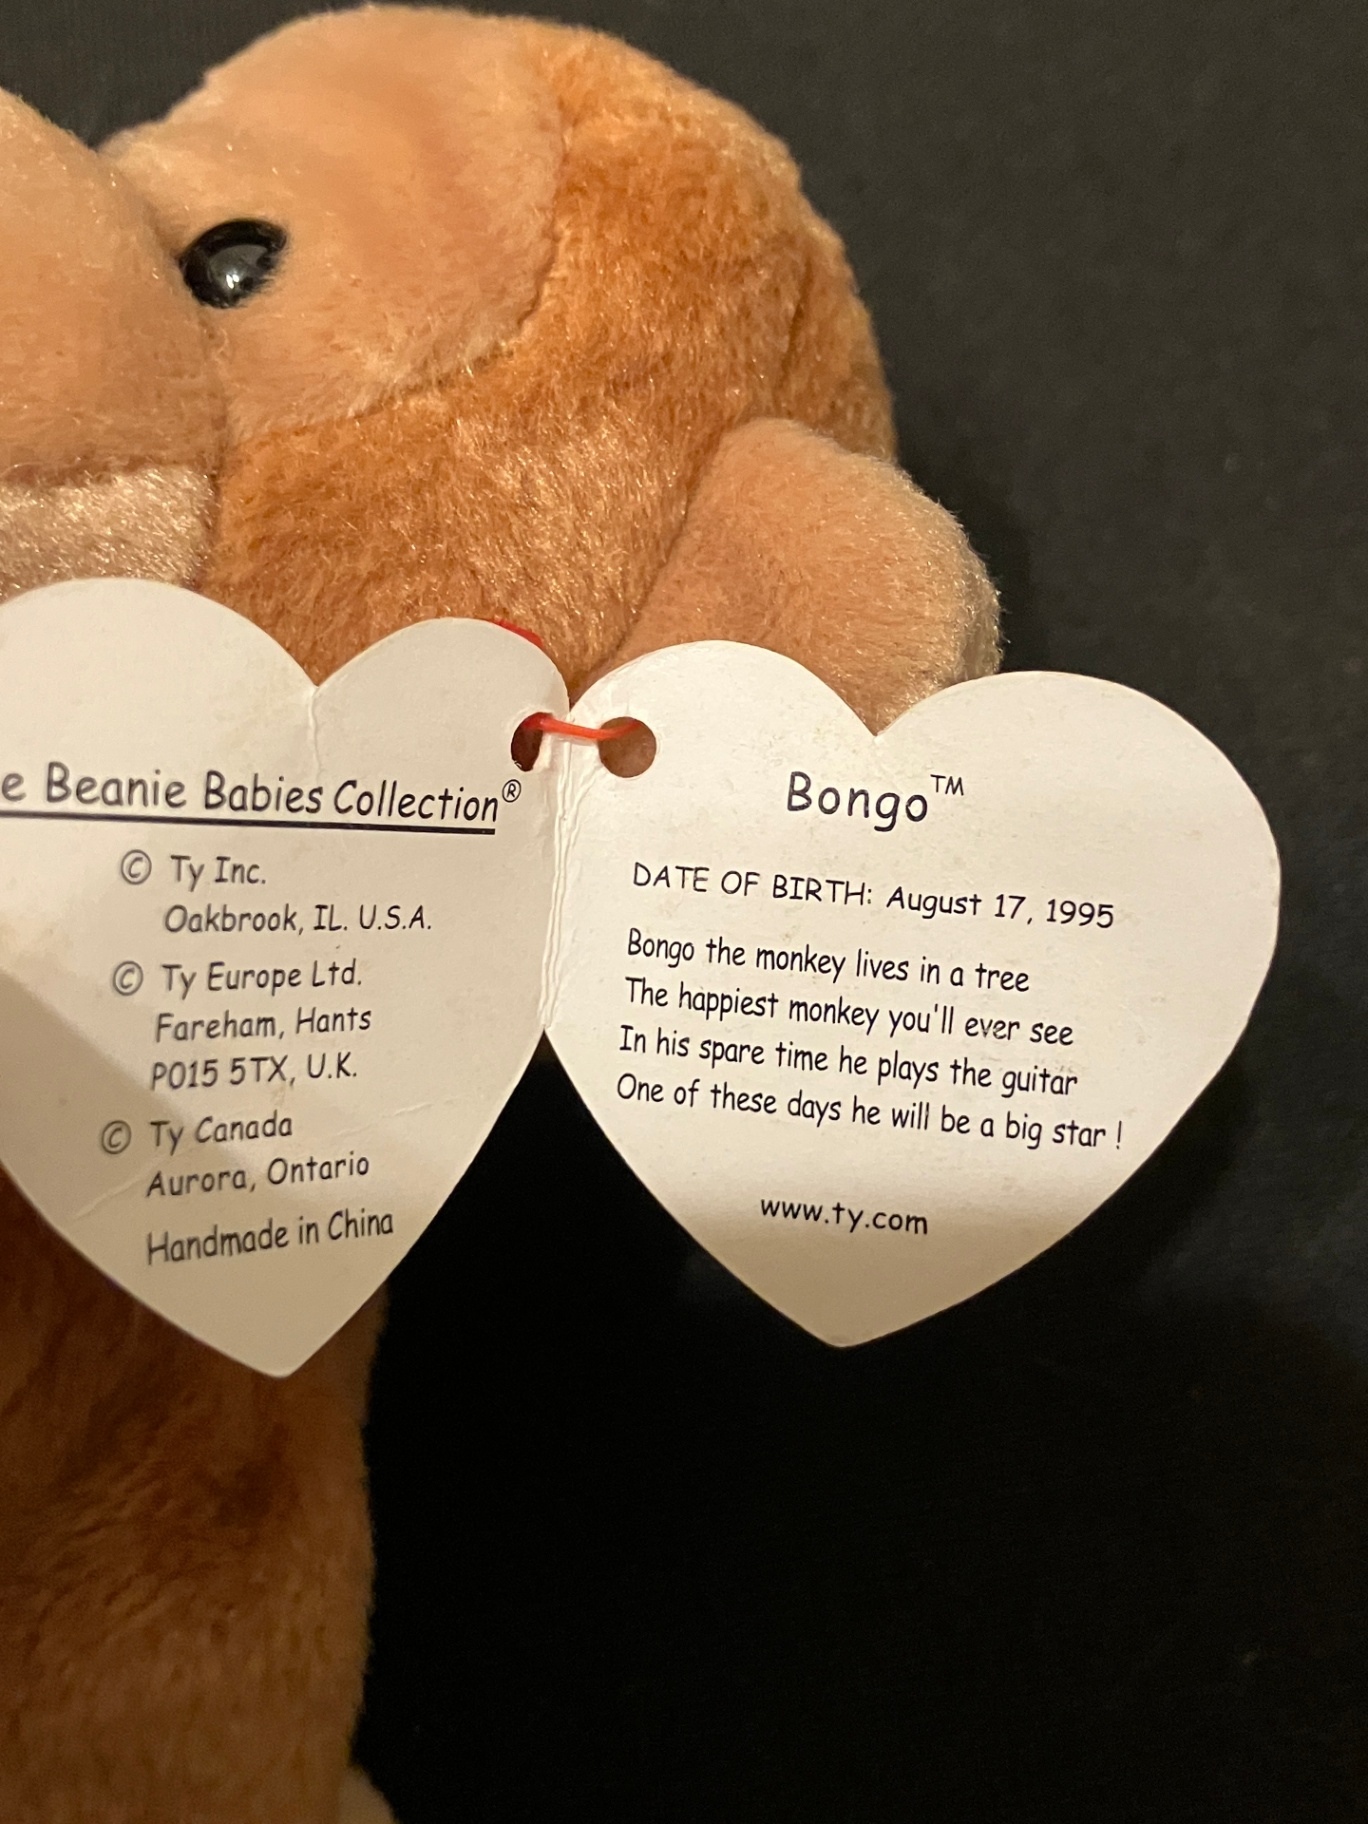 e Beanie Babies Collection®
© Ty Inc.
Oakbrook, IL. U.S.A.
© Ty Europe Ltd.
Fareham, Hants
PO15 5TX, U.K.
© Ty Canada
Aurora, Ontario
Handmade in China
Bongo™
DATE OF BIRTH: August 17, 1995
Bongo the monkey lives in a tree
The happiest monkey you'll ever see
In his spare time he plays the guitar
One of these days he will be a big star !
www.ty.com